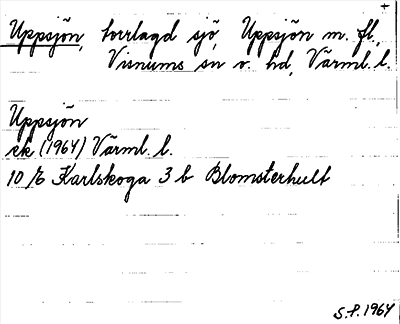 Uppsjön, torrlagd sjö, Uppsjön m. fl.,
Visnums sn v. hd, Värml. l.
Uppsjön
ek (1964) Värml. l.
10 E Karlskoga 3 b Blomsterhult
S.P. 1964